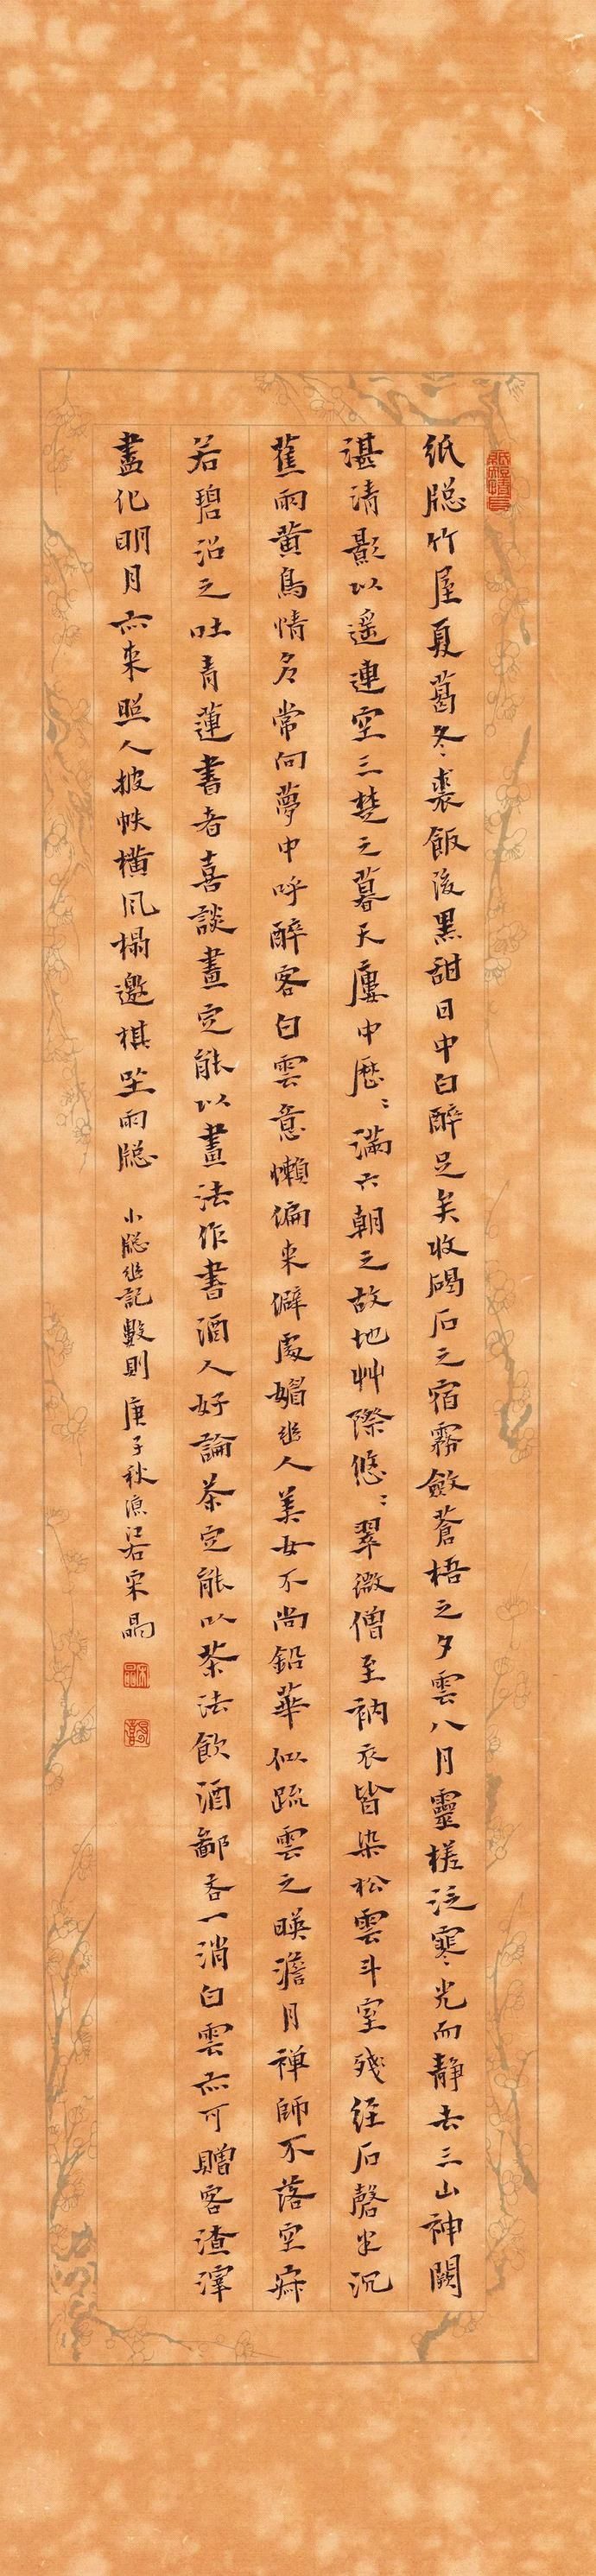 紙牕竹屋夏葛冬裘飯後黑甜日中白醉足矣收碣石之宿霧斂蒼梧之夕雲八月靈槎泛寒光而靜去三山神闕
湛清影以遥連空三楚之暮天廔中歷〻滿六朝之故地艸際悠〻翠微僧至衲衣皆染松雲斗室殘經石磬半沉
蕉雨黄鳥情多常向夢中呼醉客白雲意懶偏来僻處媚幽人美女不尚鉛華似疏雲之暎澹月禅師不落空寂
若碧沼之吐青蓮書者喜談畫定能以畫法作書酒人好論茶定能以茶法飲酒鄙吝一消白雲亦可贈客渣滓
盡化明月亦来照人披帙横風榻邀棋坐雨牕
小牕幽記數則 庚子秋漁